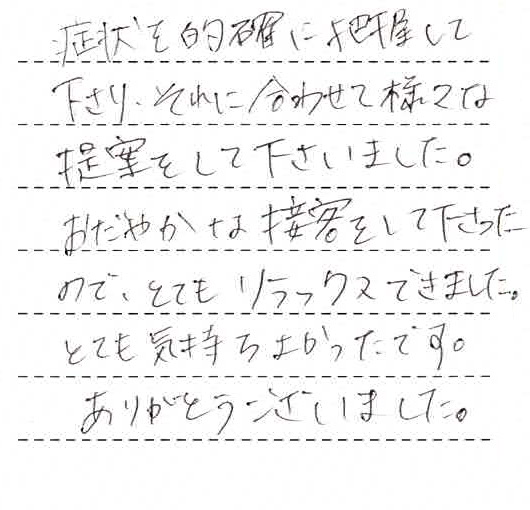 症状を的確に把握して
下さり、それに合わせて様々な
提案をして下さいました。
おだやかな接客をして下さった
ので、とても リラックスできました。
とても気持ちよかったです。
ありがとうございました。